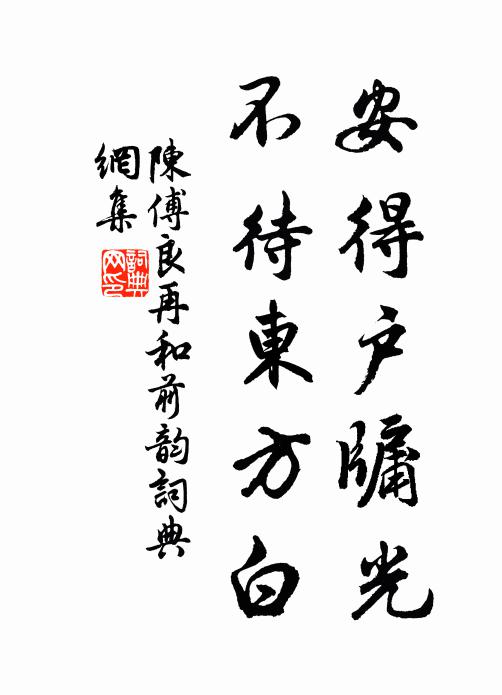 安得戶牖光
不待東方白
陳傅良再和前韵詞典
網集
詞典
网印